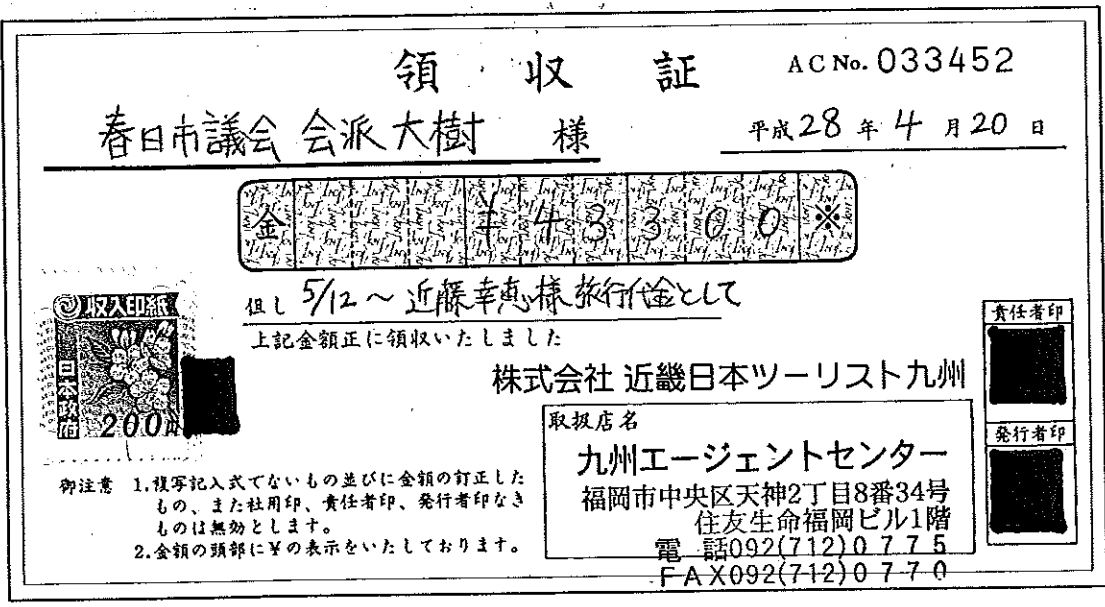 領収証
AC No. 033452
春日市議会 会派大樹 様
平成28年4月20日
金 ¥43300※
但し 5/12～近藤幸恵様旅行代金として
上記金額正に領収いたしました
収入印紙
日本政府
200円
責任者印
株式会社 近畿日本ツーリスト九州
取扱店名
九州エージェントセンター
福岡市中央区天神2丁目8番34号
住友生命福岡ビル1階
電 話092(712)0775
FAX092(712)0770
発行者印
御注意 1.複写記入式でないもの並びに金額の訂正した
もの、また社用印、責任者印、発行者印なき
ものは無効とします。
2.金額の頭部に¥の表示をいたしております。